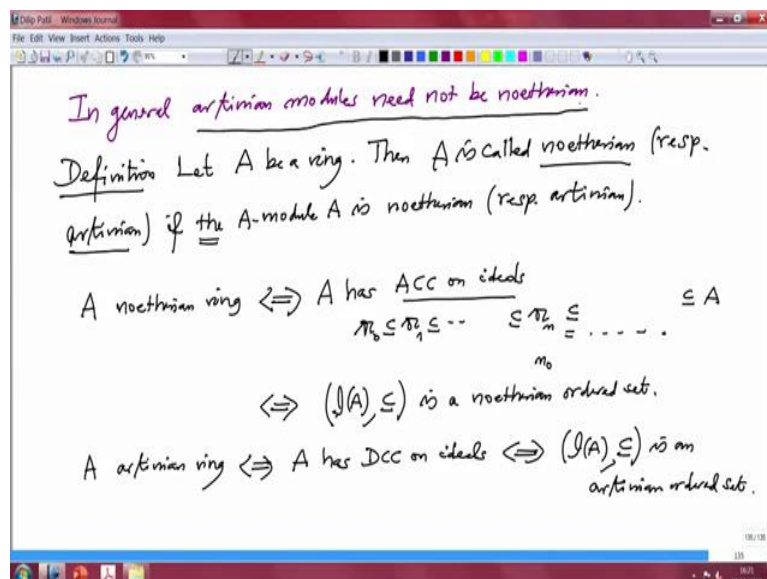 Dilip Patil - Windows Journal
File Edit View Insert Actions Tools Help
In general artinian modules need not be noetherian.
Definition Let A be a ring. Then A is called noetherian (resp.
artinian) if the A-module A is noetherian (resp. artinian).
A noetherian ring ⟺ A has ACC on ideals
𝔞₀ ⊆ 𝔞₁ ⊆ ·· ⊆ 𝔞ₙ ⊆ = ..... ⊆ A
n₀
⟺ (𝓘(A), ⊆) is a noetherian ordered set.
A artinian ring ⟺ A has DCC on ideals ⟺ (𝓘(A), ⊆) is an
artinian ordered set.
135